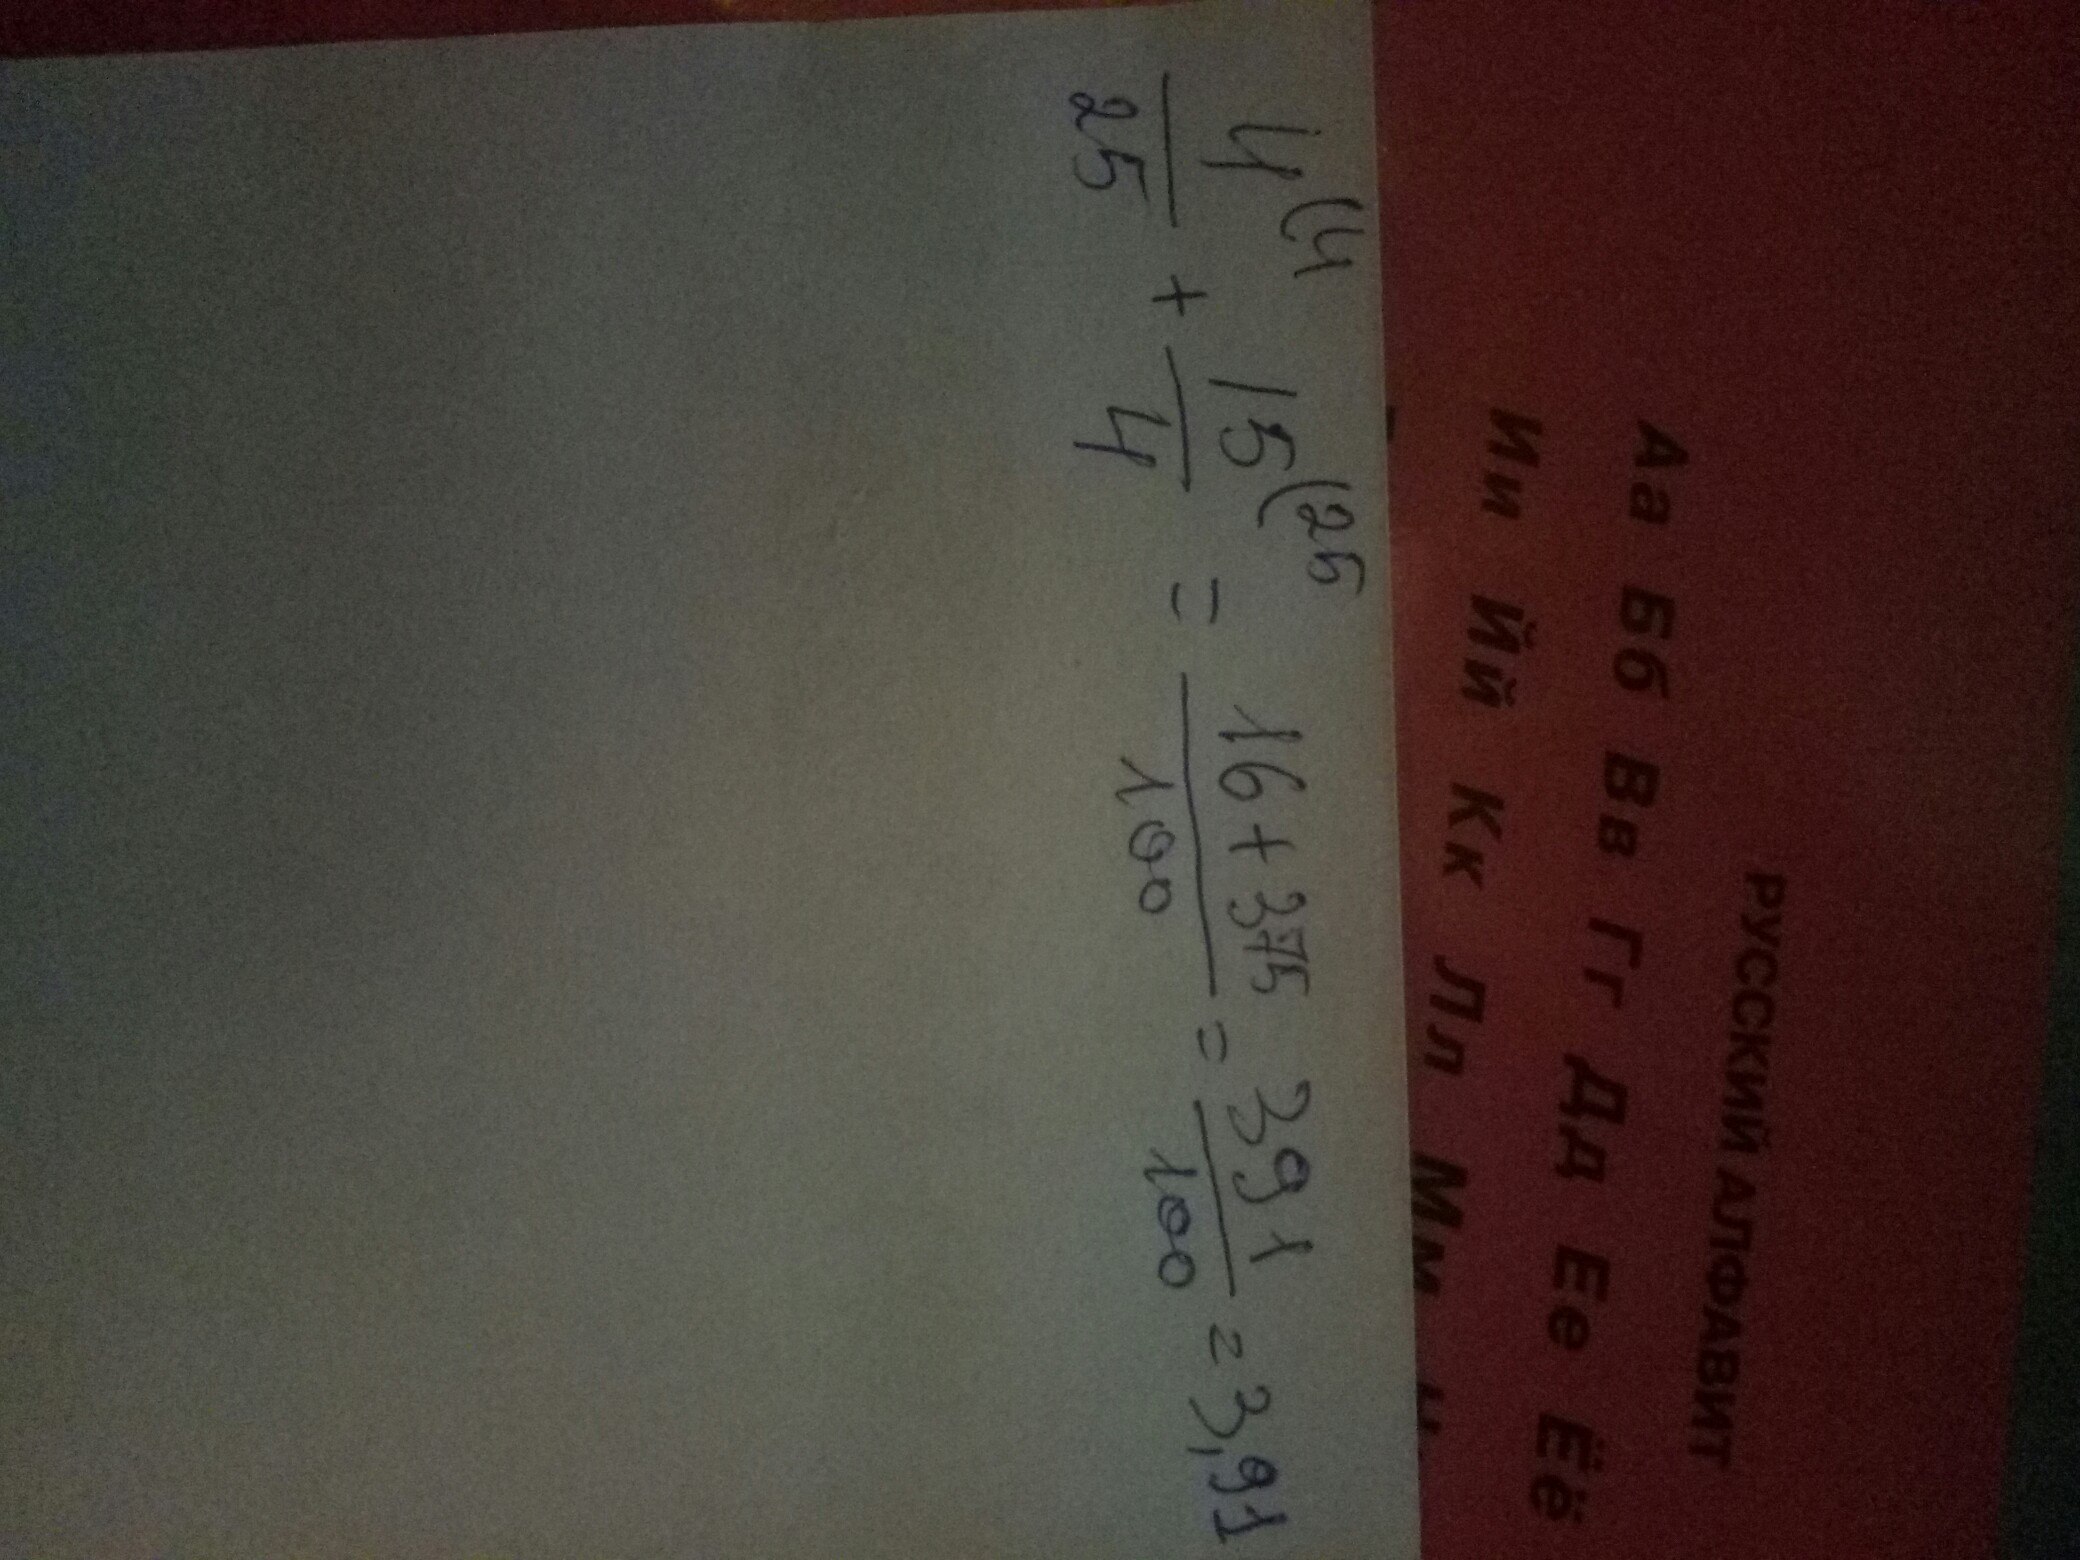 РУССКИЙ АЛФАВИТ
Аа Бб Вв Гг Дд Ее Ёё
Ии Йй Кк Лл Мм
4(4 15(25 16+375 391
— + — = — = — = 3,91
25 4 100 100